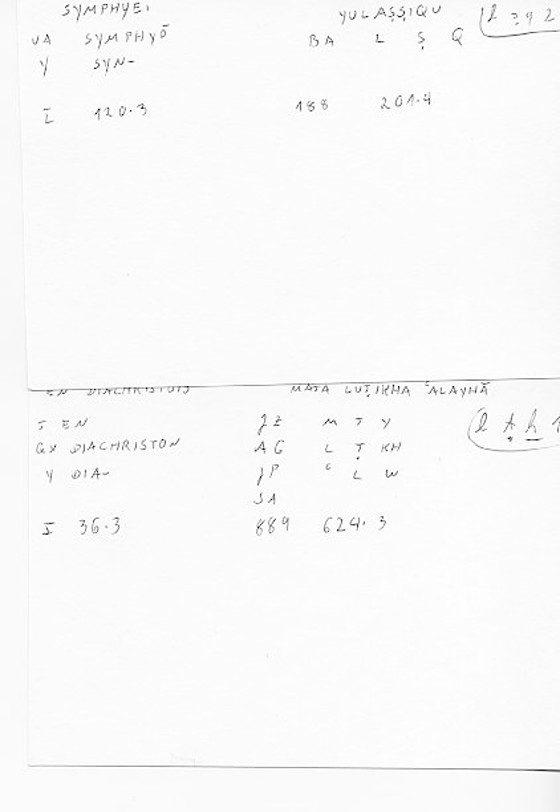 SYMPHYEI YULAṢṢIQU
VA SYMPHYŌ BA L Ṣ Q
Y SYN-
I 120.3 188 201.4
EN DIACHRISTOIS MATA LUṬIKHA ʿALAYHĀ
T EN JZ M T Y
QX DIACHRISTON AG L Ṭ KH
Y DIA- JP ʿ L W
SA
I 36.3 889 624.3